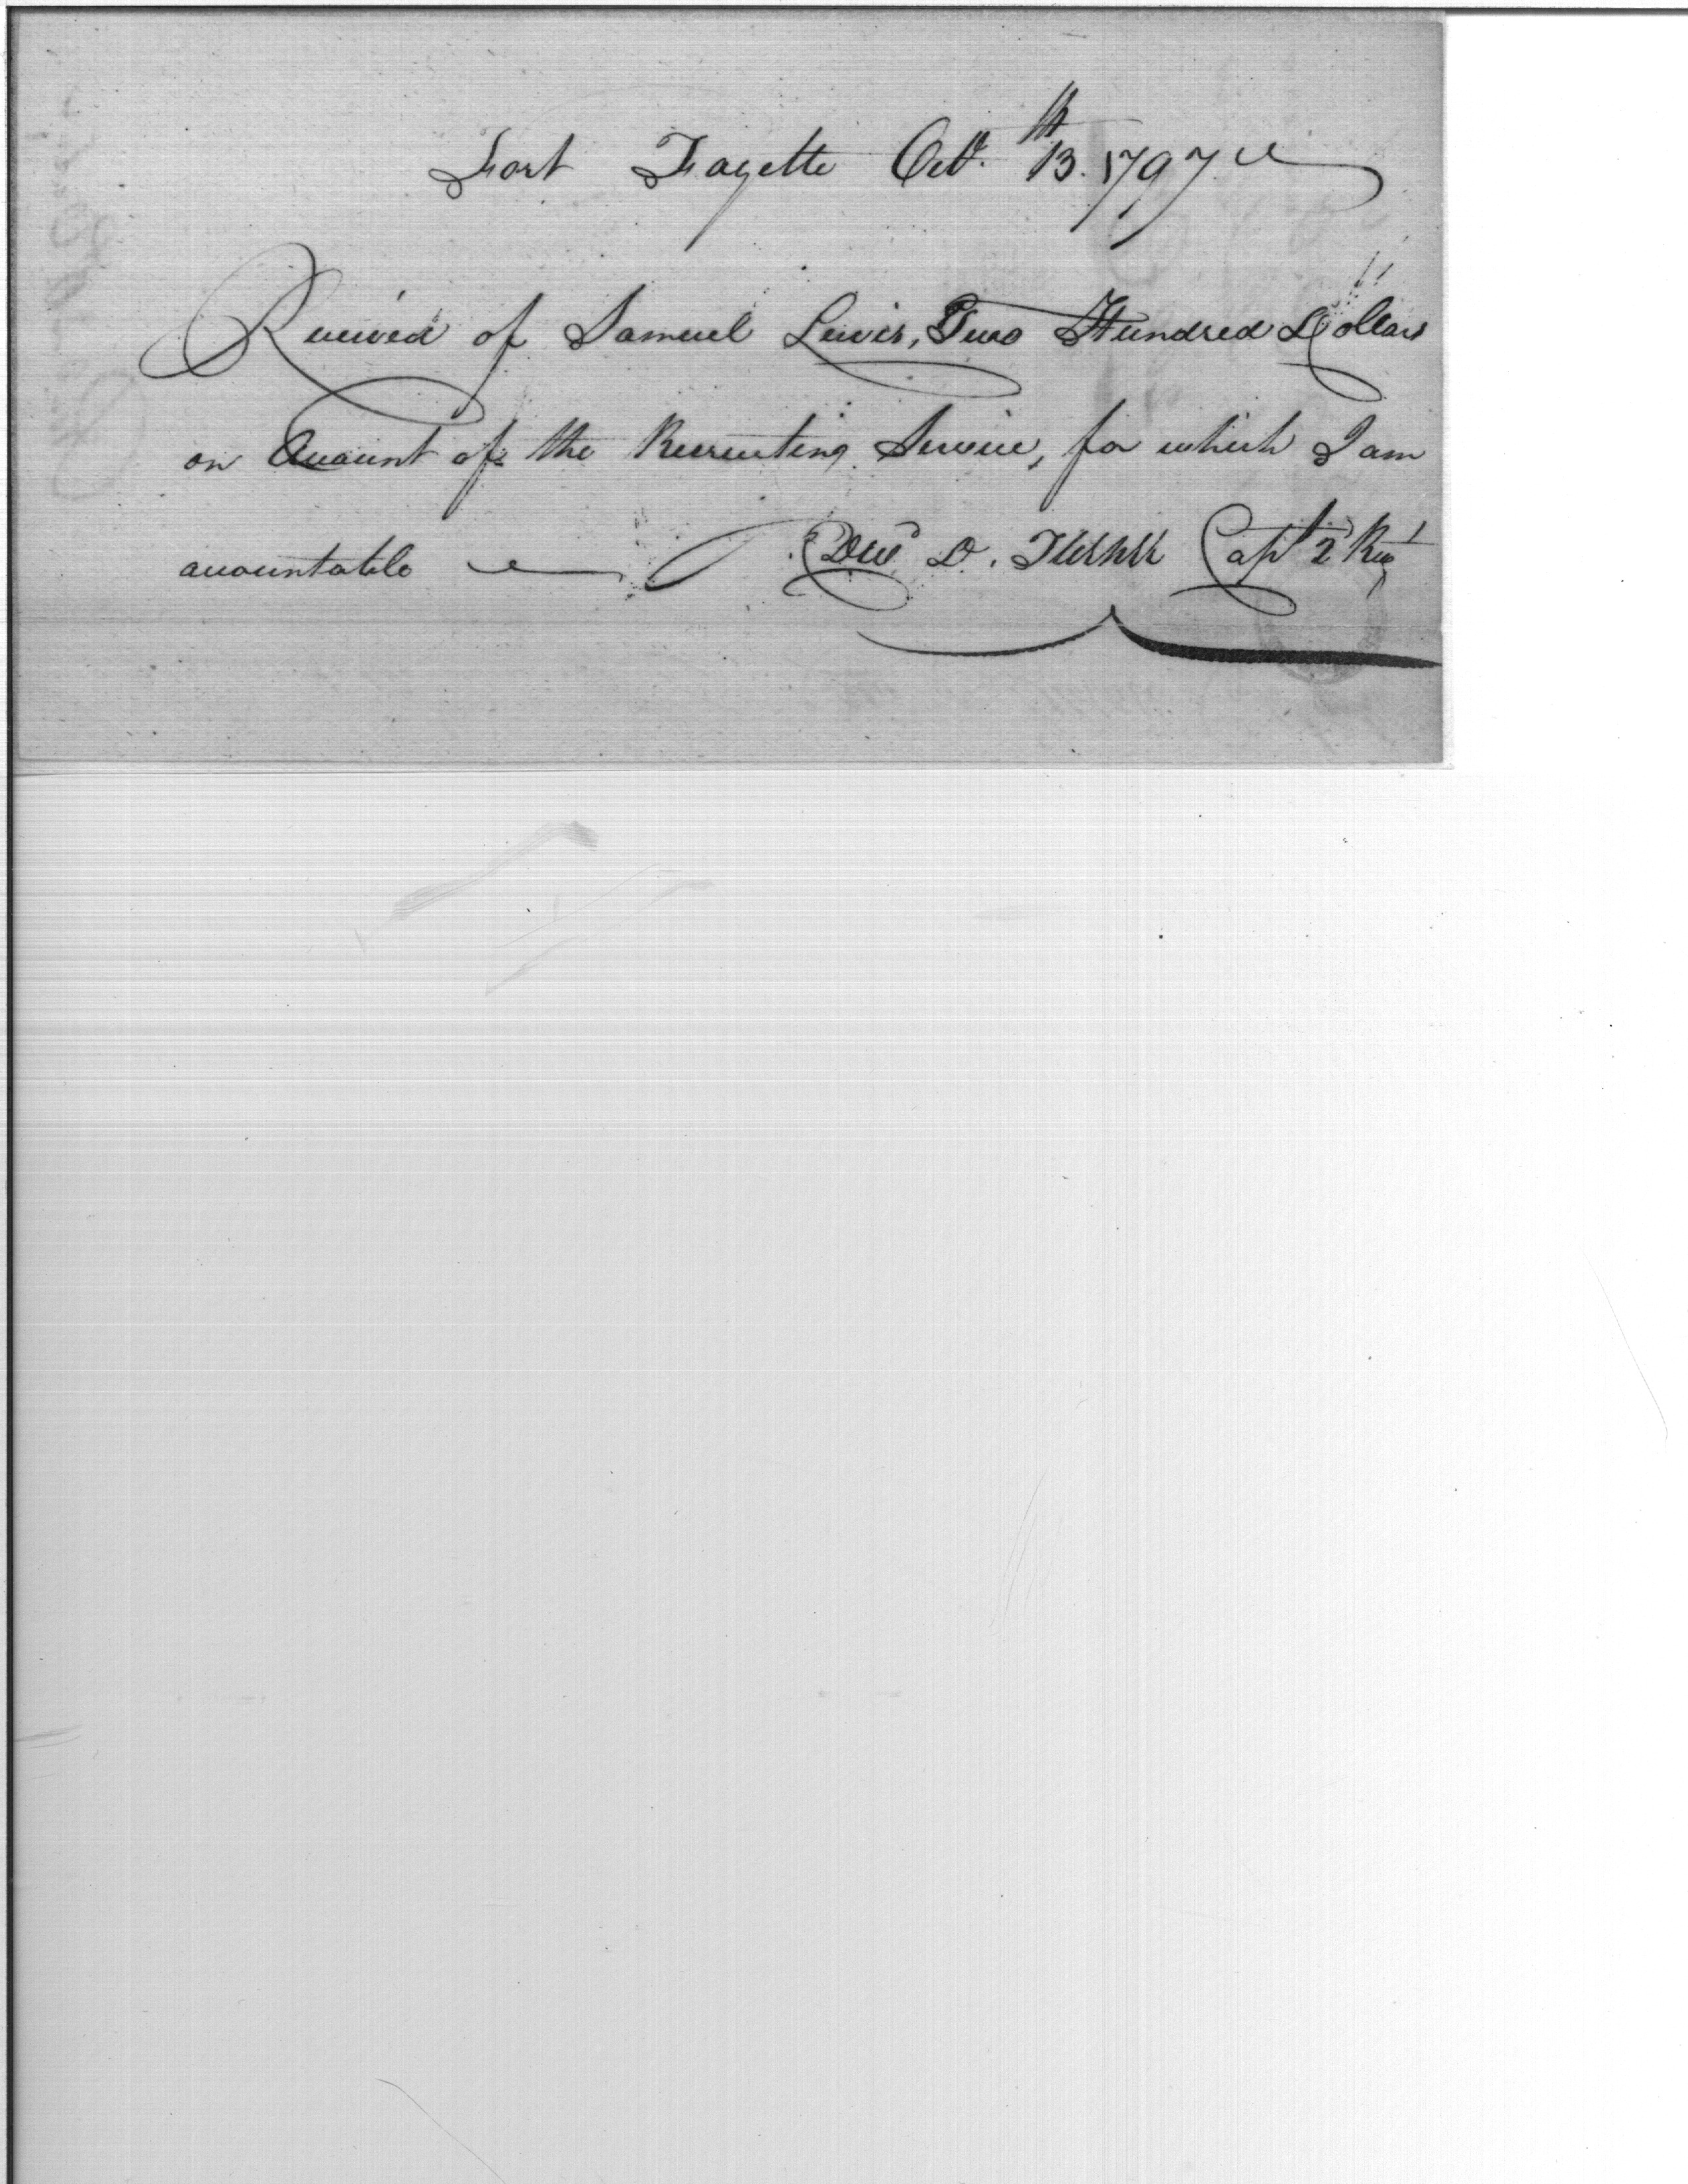 Fort Fayette Octr. 13th. 1797
Received of Samuel Lewis, Two Hundred Dollars
on Account of the Recruiting Service, for which I am
accountable Edwd D. Turner Capt 2 Regt